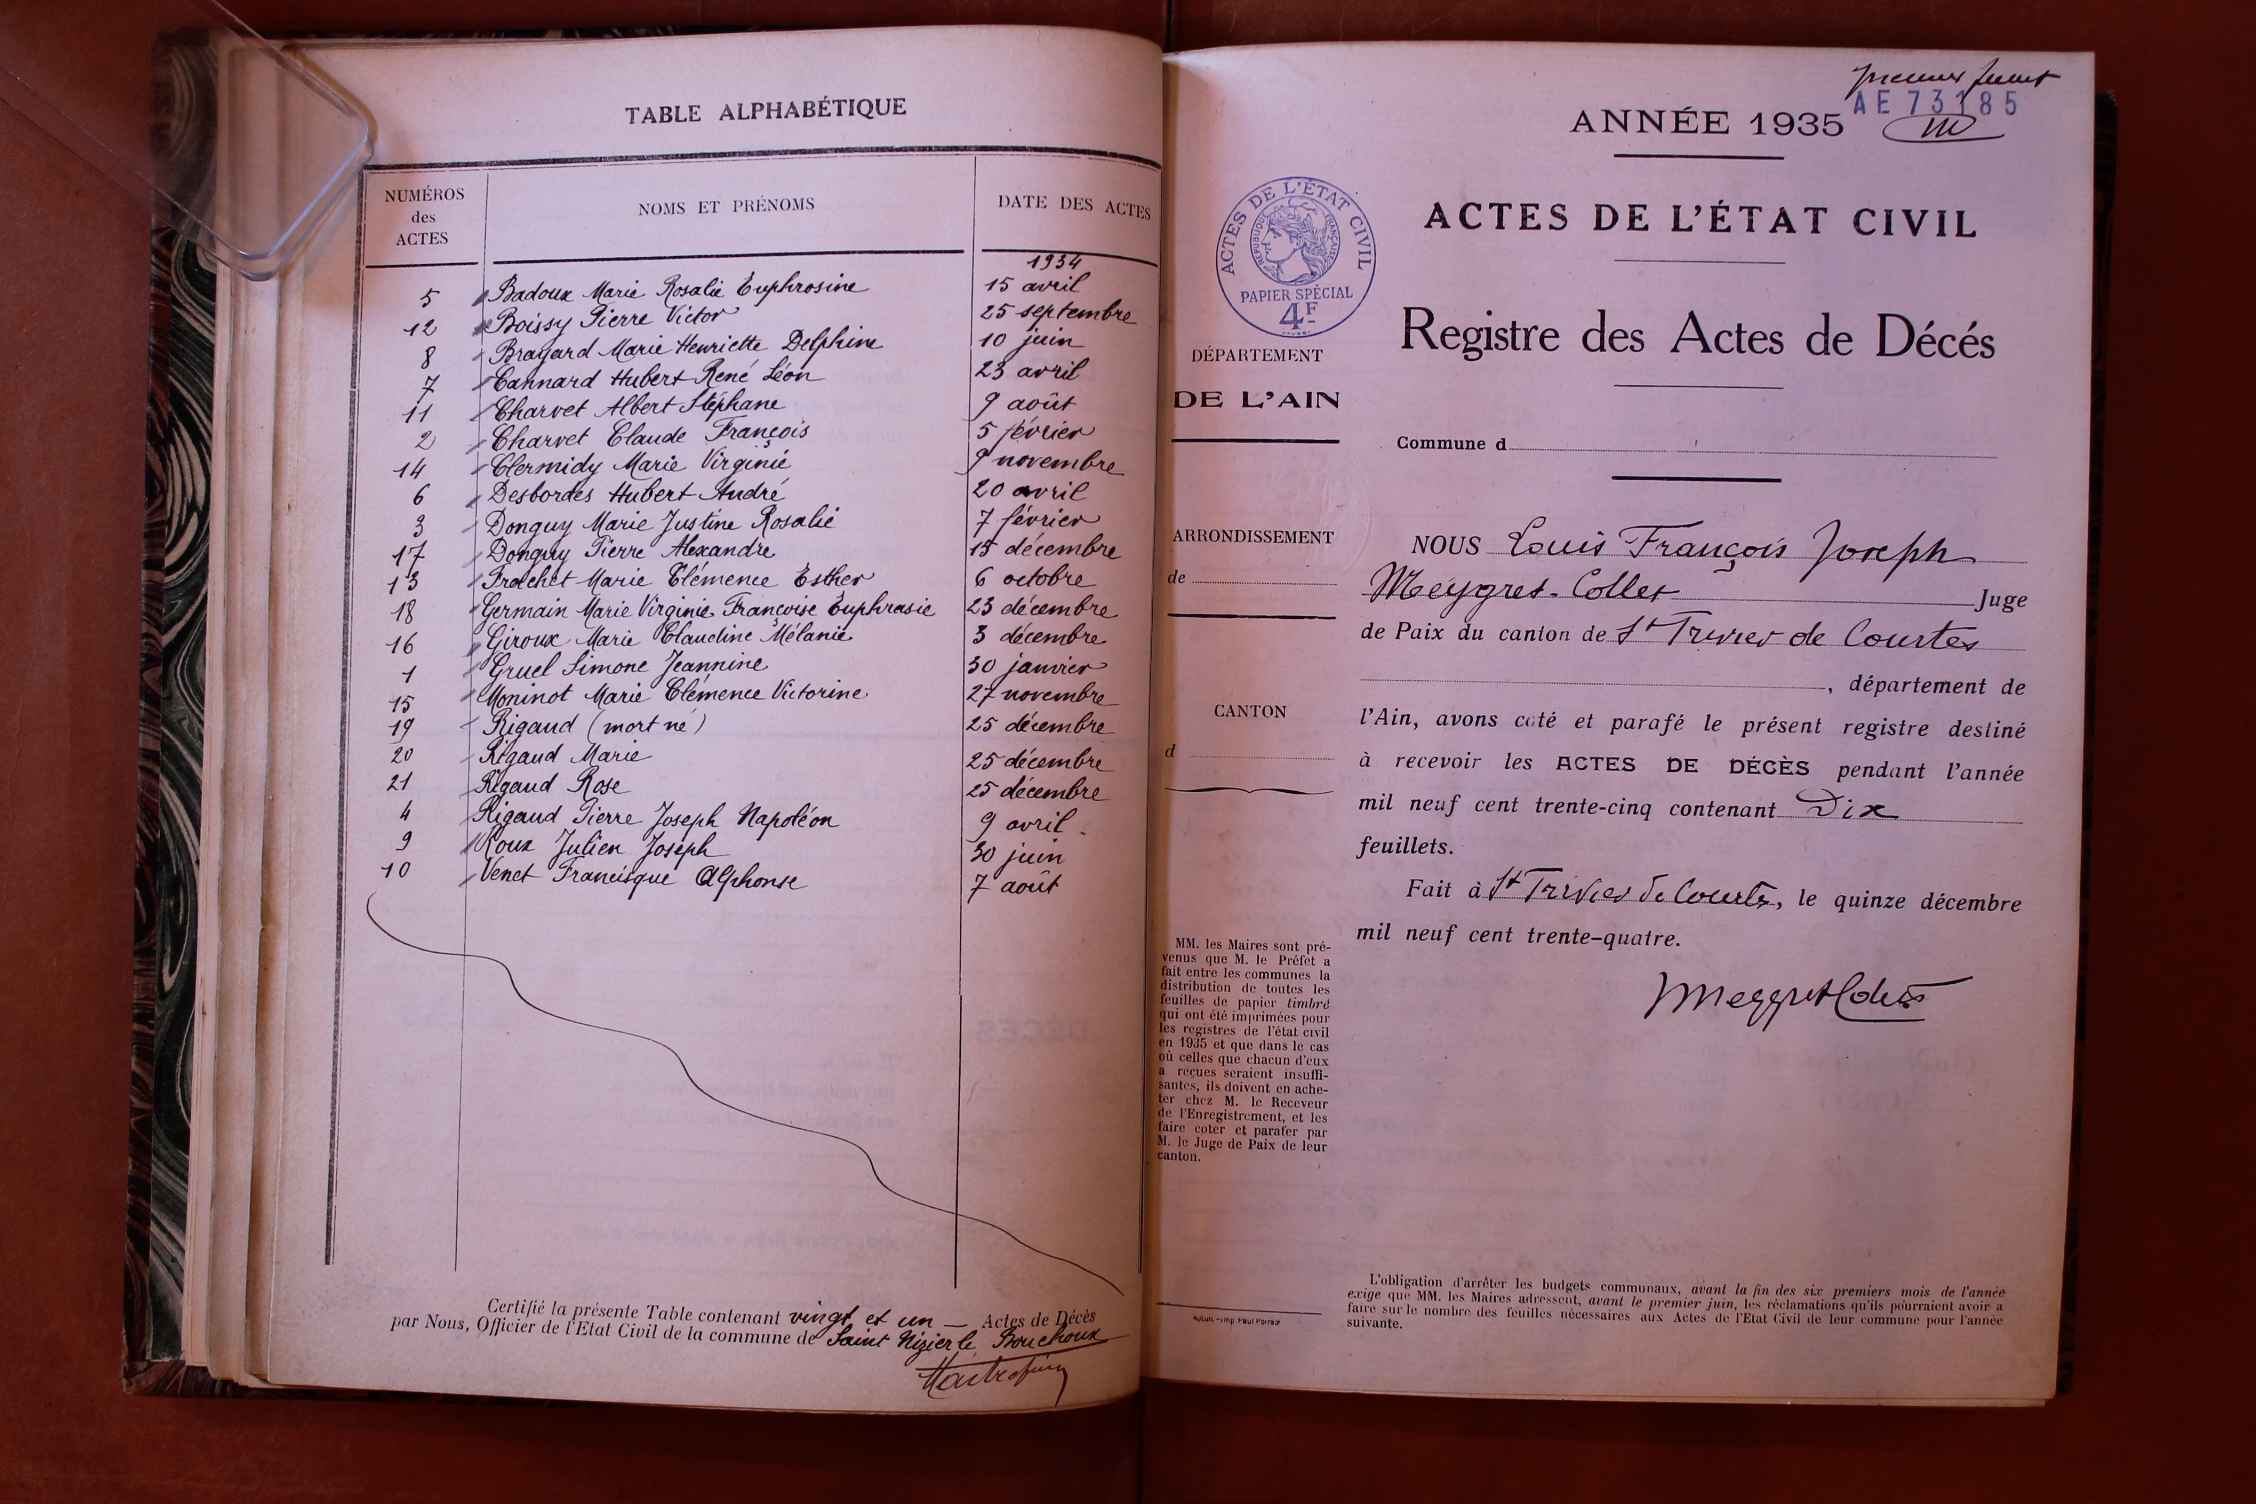 TABLE ALPHABÉTIQUE
NUMÉROS des ACTES NOMS ET PRÉNOMS DATE DES ACTES
1934
5 Badoux Marie Rosalie Euphrosine 15 avril
12 Boissy Pierre Victor 25 septembre
8 Brayard Marie Henriette Delphine 10 juin
7 Cannard Hubert René Léon 23 avril
11 Charvet Albert Stéphane 9 août
2 Charvet Claude François 5 février
14 Clermidy Marie Virginie 9 novembre
6 Desbordes Hubert André 20 avril
3 Donguy Marie Justine Rosalie 7 février
17 Donguy Pierre Alexandre 15 décembre
13 Frachet Marie Clémence Esther 6 octobre
18 Germain Marie Virginie Françoise Euphrasie 23 décembre
16 Giroux Marie Claudine Mélanie 3 décembre
1 Gruel Simone Jeannine 30 janvier
15 Moninot Marie Clémence Victorine 27 novembre
19 Rigaud (mort né) 25 décembre
20 Rigaud Marie 25 décembre
21 Rigaud Rose 25 décembre
4 Rigaud Pierre Joseph Napoléon 9 avril
9 Roux Julien Joseph 30 juin
10 Venet Francisque Alphonse 7 août
Certifié la présente Table contenant vingt et un — Actes de Décès
par Nous, Officier de l'Etat Civil de la commune de Saint Nizier le Bouchoux
premier
AE 73185
ANNÉE 1935
ACTES DE L'ÉTAT CIVIL
Registre des Actes de Décés
ACTES DE L'ÉTAT CIVIL
RÉPUBLIQUE FRANÇAISE
PAPIER SPÉCIAL
4F
DÉPARTEMENT
DE L'AIN
ARRONDISSEMENT
de
CANTON
d
MM. les Maires sont pré-
venus que M. le Préfet a
fait entre les communes la
distribution de toutes les
feuilles de papier timbré
qui ont été imprimées pour
les registres de l'état civil
en 1935 et que dans le cas
où celles que chacun d'eux
a reçues seraient insuffi-
santes, ils doivent en ache-
ter chez M. le Receveur
de l'Enregistrement, et les
faire coter et parafer par
M. le Juge de Paix de leur
canton.
Commune d
NOUS Louis François Joseph
Meygret-Collet Juge
de Paix du canton de St Trivier de Courtes
, département de
l'Ain, avons coté et parafé le présent registre destiné
à recevoir les ACTES DE DÉCÈS pendant l'année
mil neuf cent trente-cinq contenant Dix
feuillets.
Fait à St Trivier de Courtes, le quinze décembre
mil neuf cent trente-quatre.
L'obligation d'arrêter les budgets communaux, avant la fin des six premiers mois de l'année
exige que MM. les Maires adressent, avant le premier juin, les réclamations qu'ils pourraient avoir a
faire sur le nombre des feuilles nécessaires aux Actes de l'Etat Civil de leur commune pour l'année
suivante.